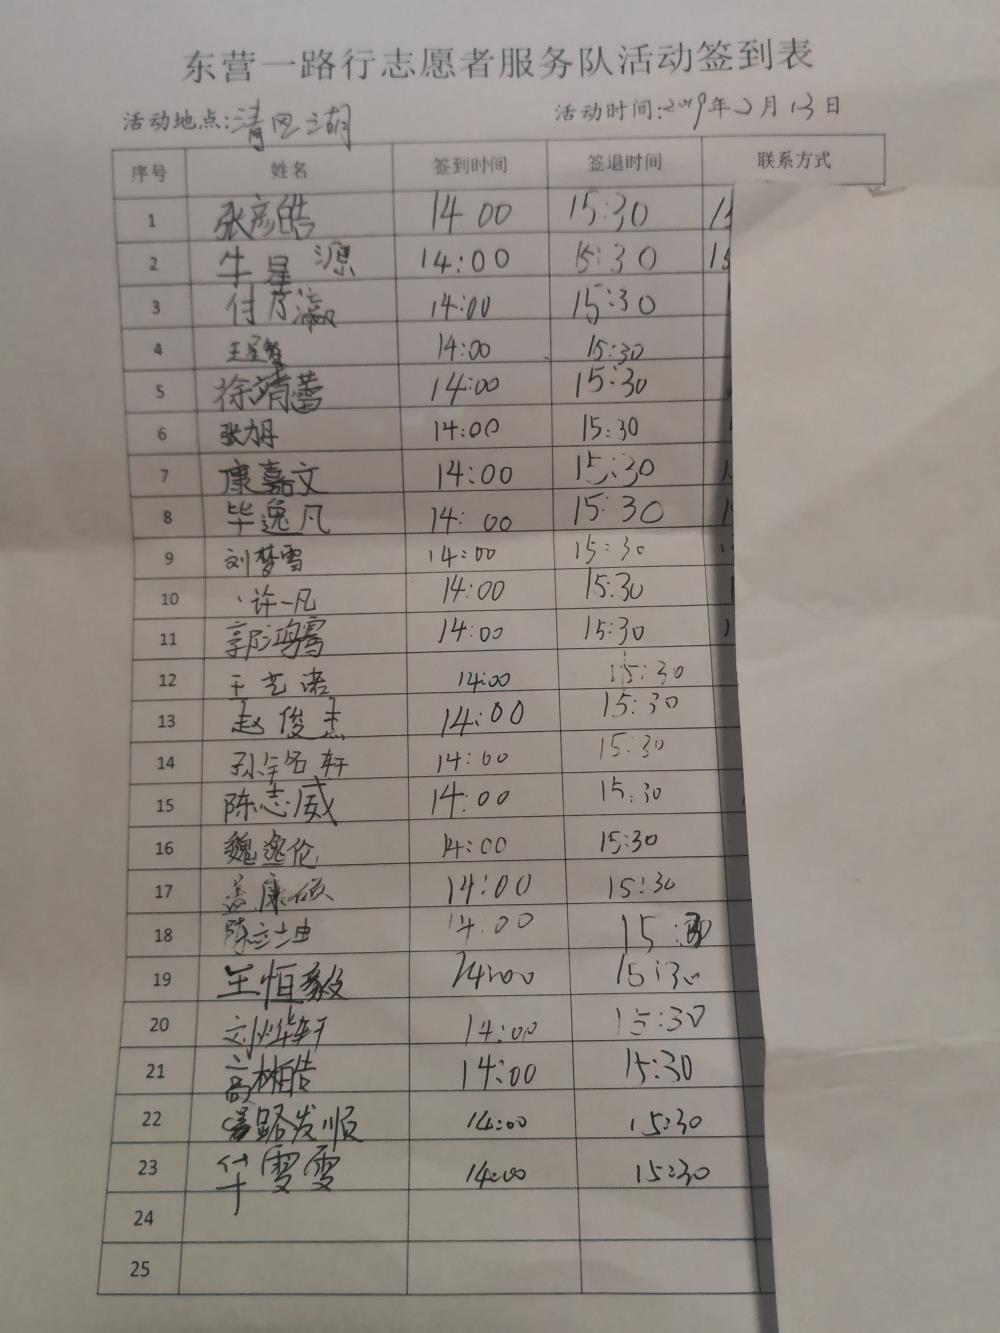 东营一路行志愿者服务队活动签到表
活动地点:清风湖 活动时间:2019年2月13日
序号 姓名 签到时间 签退时间 联系方式
1 张彦皓 14 00 15:30
2 牛星源 14:00 15:30
3 付 14:00 15:30
4 14:00 15:30
5 徐靖蕾 14:00 15:30
6 14:00 15:30
7 康嘉文 14:00 15:30
8 毕逸凡 14:00 15:30
9 刘梦雪 14:00 15:30
10 许一凡 14:00 15:30
11 郭鸿雪 14:00 15:30
12 王艺诺 14:00 15:30
13 赵俊杰 14:00 15:30
14 14:00 15:30
15 陈志威 14:00 15:30
16 魏逸伦 14:00 15:30
17 盖康硕 14:00 15:30
18 14:00 15:30
19 王恒毅 14:00 15:30
20 刘烨轩 14:00 15:30
21 高林皓 14:00 15:30
22 路发顺 14:00 15:30
23 华雯雯 14:00 15:30
24
25